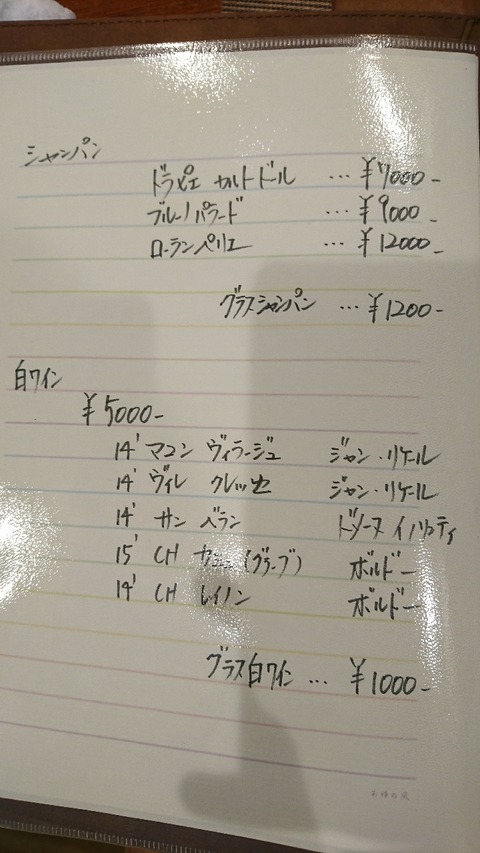 シャンパン
ドラピエ カルトドール … ¥7000-
ブルーノパイヤード … ¥9000-
ローランペリエ … ¥12000-
グラスシャンパン … ¥1200-
白ワイン
¥5000-
14' マコン ヴィラージュ ジャン・リケール
14' ヴィレ クレッセ ジャン・リケール
14' サン ベラン
15' CH (グラーブ) ボルドー
14' CH レイノン ボルドー
グラス白ワイン … ¥1000-